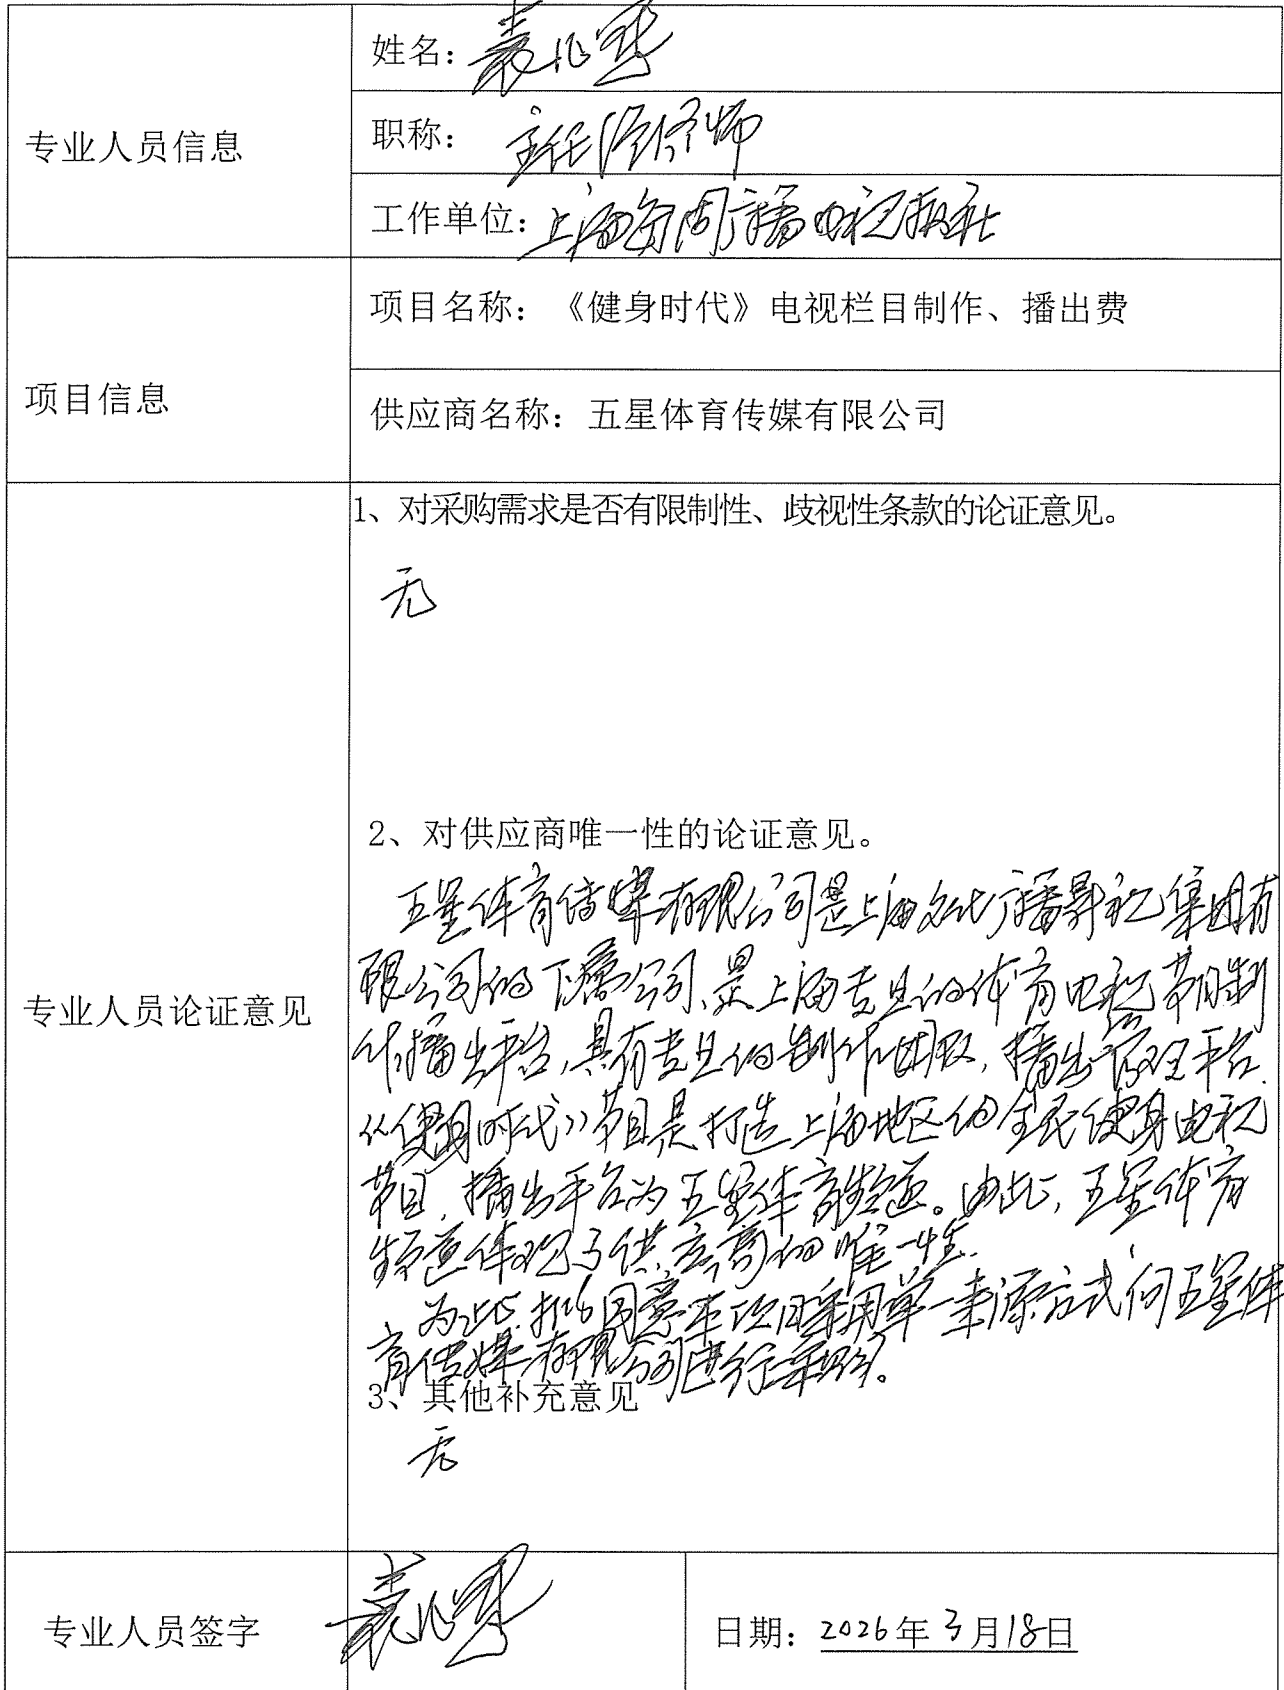 专业人员信息
姓名：袁
职称：主任
工作单位：上海每周广播电视报社
项目信息
项目名称：《健身时代》电视栏目制作、播出费
供应商名称：五星体育传媒有限公司
专业人员论证意见
1、对采购需求是否有限制性、歧视性条款的论证意见。
无
2、对供应商唯一性的论证意见。
五星体育传媒有限公司是上海文化广播影视集团有
限公司的下属公司，是上海专业的体育电视节目制
作播出平台，具有专业的制作团队，播出管理平台.
《健身时代》节目是打造上海地区的全民健身电视
节目，播出平台为五星体育频道。由此，五星体育
频道体现了供应商的唯一性.
为此，我同意本项目采用单一来源方式向五星体
育传媒有限公司进行采购。
3、其他补充意见
无
专业人员签字 袁
日期：2026年3月18日